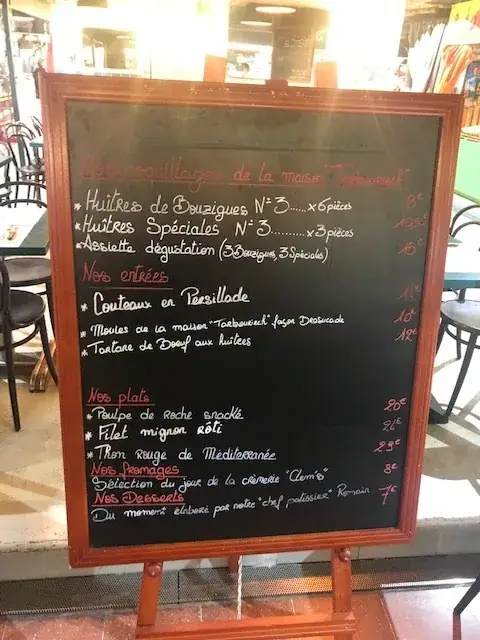 Nos coquillages de la maison "Tarbouriech"
* Huîtres de Bouzigues N°3..... x6 pièces 8€
* Huîtres Spéciales N°3.......... x3 pièces
* Assiette dégustation (3 Bouzigues, 3 Spéciales) 15€
Nos entrées
* Couteaux en Persillade 14€
* Moules de la maison "Tarbouriech" façon Brasucade 10€
* Tartare de Boeuf aux huîtres 12€
Nos plats
* Poulpe de Roche snacké 20€
* Filet mignon rôti 24€
* Thon Rouge de Méditerranée 29€
Nos fromages 8€
Sélection du jour de la crèmerie "Clem's"
Nos Desserts 7€
Du moment élaboré par notre "chef patissier" Romain